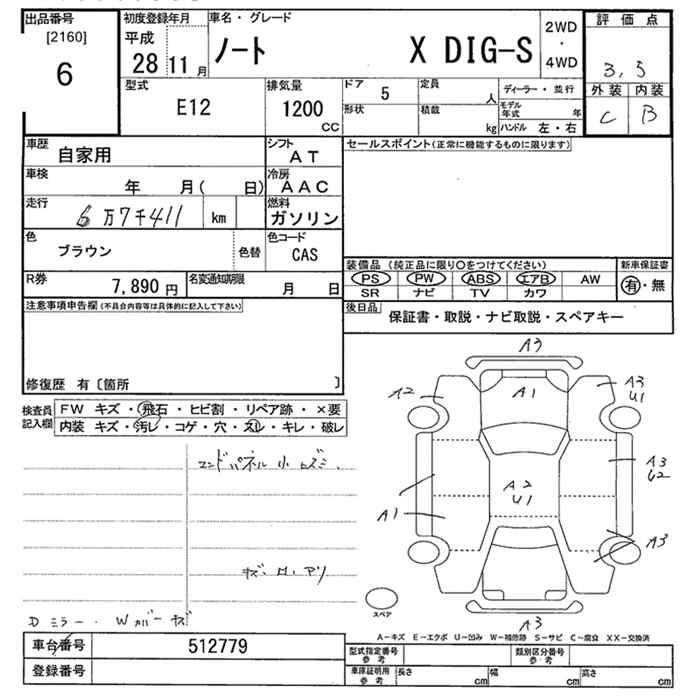 出品番号
[2160]
6
初度登録年月
平成
28 11 月
車名・グレード
ノート X DIG-S
2WD
・
4WD
評価点
3,5
外装 内装
C B
型式
E12
排気量
1200
CC
ドア 5
形状
定員 人
積載 kg
ディーラー・並行
モデル年式 年
ハンドル 左・右
車歴
自家用
シフト
AT
セールスポイント(正常に機能するものに限ります)
車検
年 月( 日)
冷房
AAC
走行
6万7千411 km
燃料
ガソリン
色
ブラウン
色替
色コード
CAS
装備品 (純正品に限り○をつけてください)
新車保証書
PS PW ABS エアB AW
SR ナビ TV カワ
有・無
R券
7,890 円
名変通知期限
月 日
後日品
保証書・取説・ナビ取説・スペアキー
注意事項申告欄(不具合内容等は具体的に記入して下さい)
修復歴 有〔箇所 〕
検査員
記入欄
FW キズ・飛石・ヒビ割・リペア跡・×要
内装 キズ・汚レ・コゲ・穴・スレ・キレ・破レ
エンドパネル小ユズミ.
キズ・H.アリ
Dミラー. Wカバーキズ
A3
A2
A1
A3
U1
A2
U1
A3
U2
A1
A3
スペア
A3
A-キズ E-エクボ U-凹み W-補修跡 S-サビ C-腐食 XX-交換済
車台番号
512779
登録番号
型式指定番号
参考
類別区分番号
参考
車庫証明用
参考
長さ cm
幅 cm
高さ cm